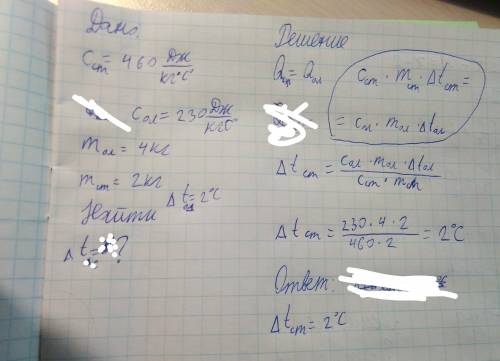 Дано:
Cст = 460 Дж/кг°С
Cол = 230 Дж/кг°С
mол = 4кг
mст = 2кг
Δtол = 2°С
Найти
Δt = ?
Решение
Qст = Qол
Cст · mст · Δtст =
= Cол · mол · Δtол
Δtст = Cол · mол · Δtол / Cст · mст
Δtст = 230 · 4 · 2 / 460 · 2 = 2°С
Ответ:
Δtст = 2°С